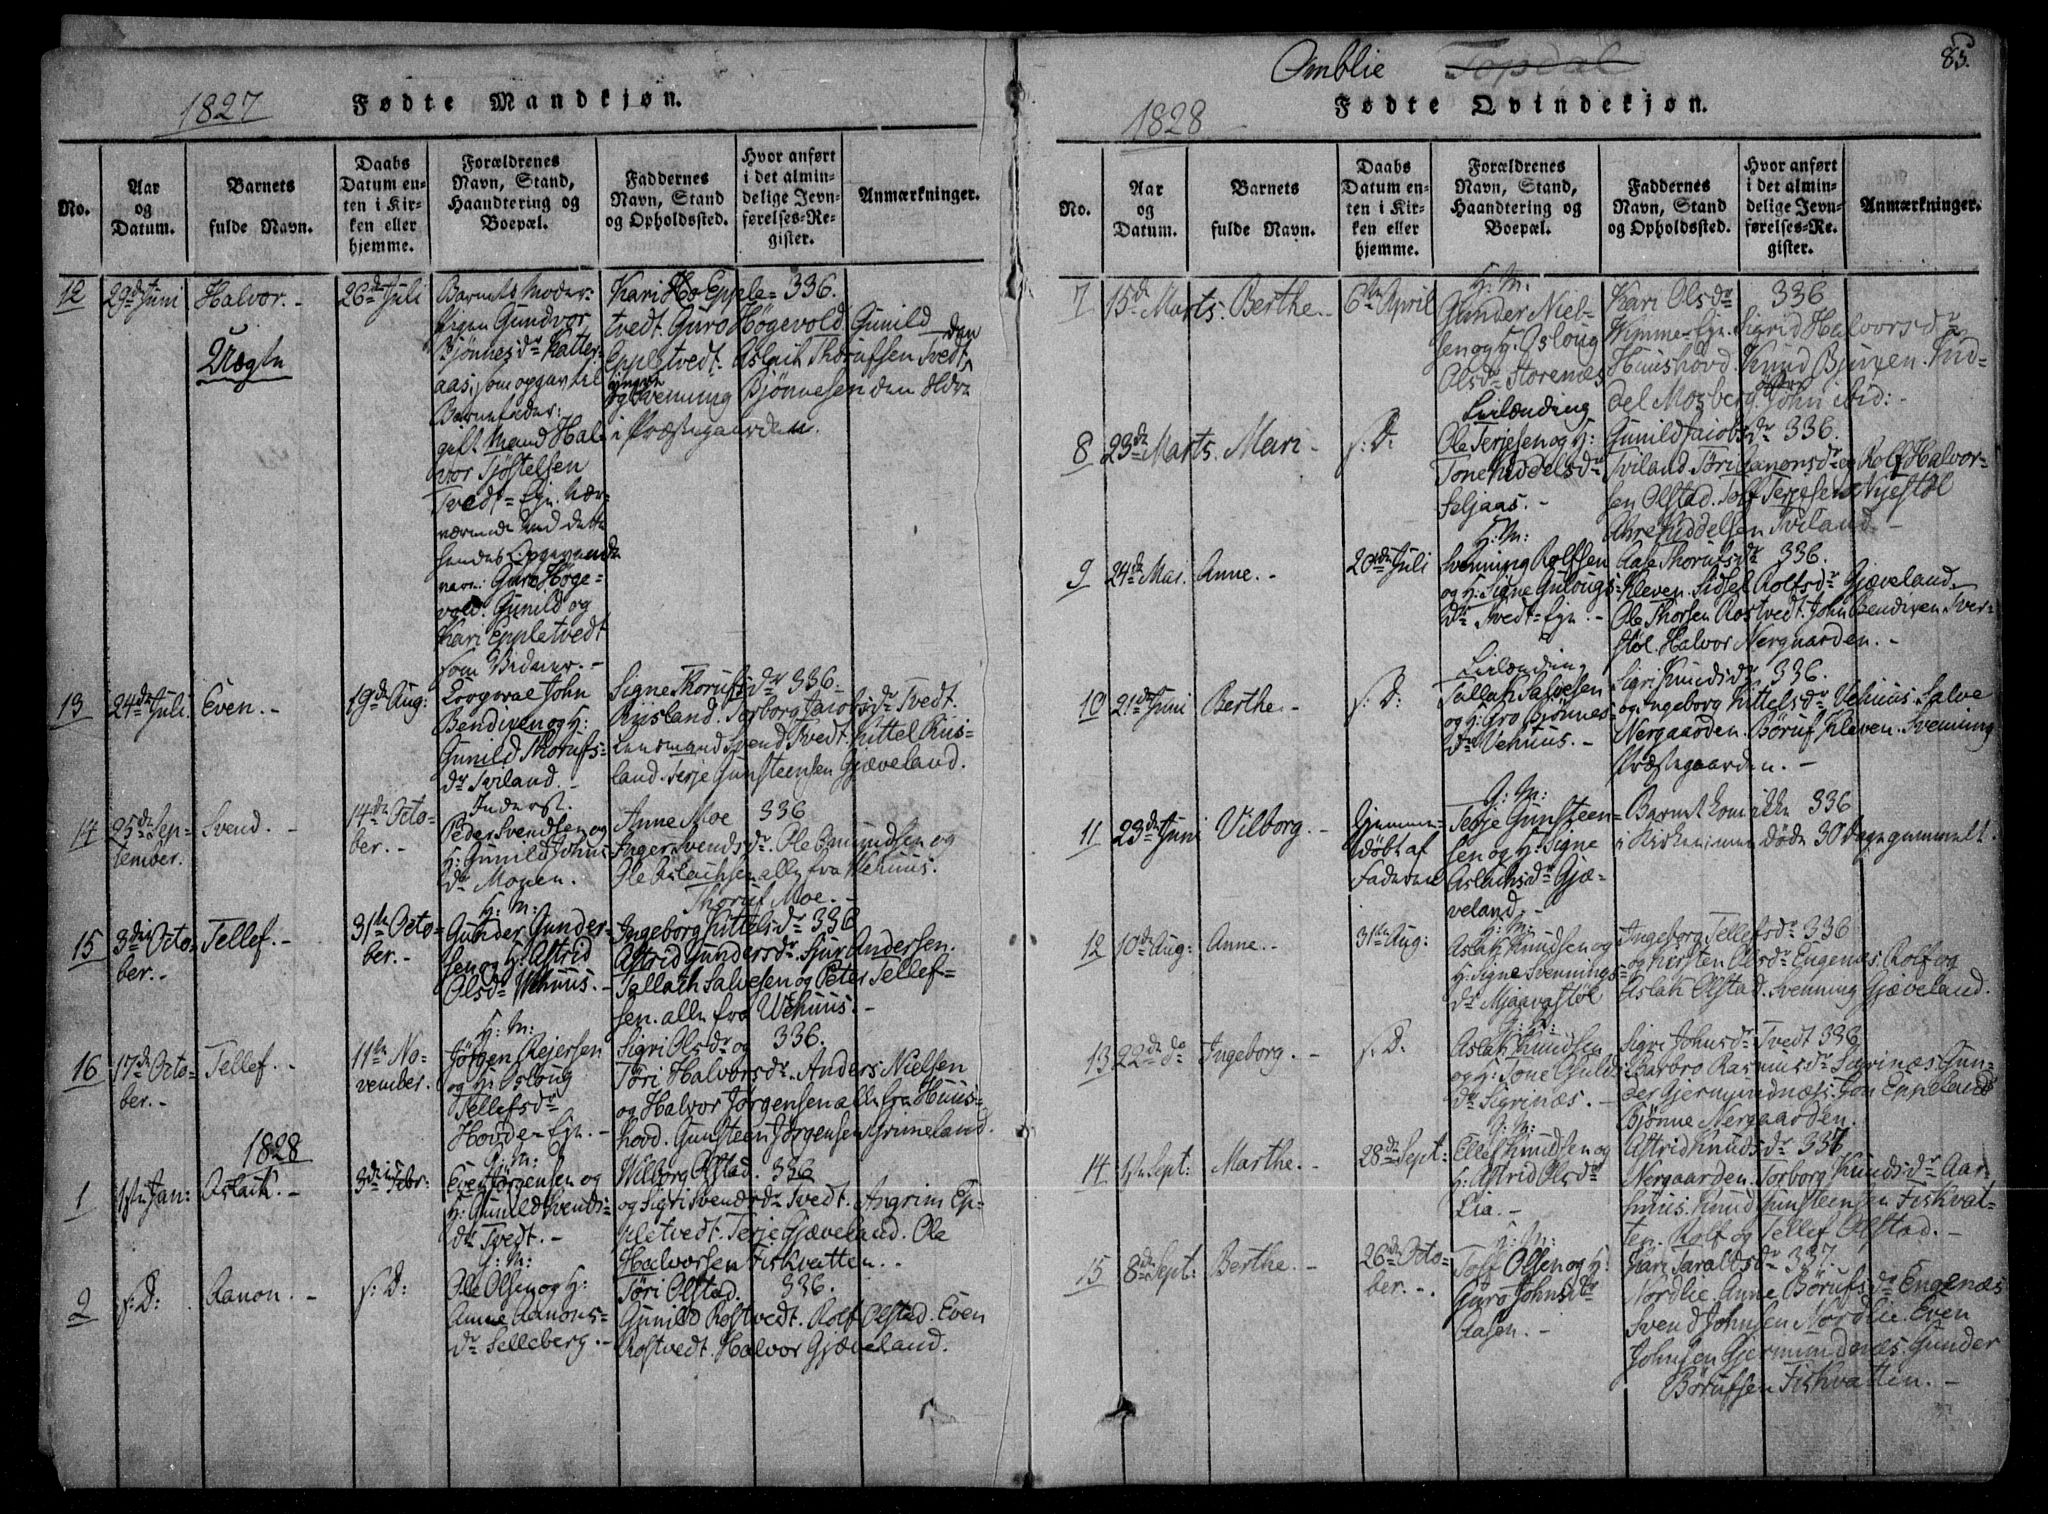 1827
Fødte Mandkjøn.
No.
Aar
og
Datum.
Barnets
fulde Navn.
Daabs
Datum en-
ten i Kir-
ken eller
hjemme.
Forældrenes
Navn, Stand,
Haandtering og
Boepæl.
Faddernes
Navn, Stand
og Opholdssted.
Hvor anført
i det almin-
delige Jevn-
førelses-Re-
gister.
Anmærkninger.
12
29de Juni
Halvor. -
Uægte
26de Juli
Barnets Moder:
Pigen Gundvor
Bjønnesdr Katter-
aas, som opgav til
Barnefader:
gift Mand Hal-
vor Tjøstelsen
Tvedt-Ejn. Nær-
værende ved dette
hendes Opgivende
vare: Guro Høge-
vold. Gunild og
Kari Eppletvedt
som Vidner. -
Kari Ho Epple- 336.
tvedt. Guro Høgevold. Gunild
Eppletvedt. Aslach Thorufsen Tvedt,
og Svenning Bjønnesen den
i Præstegaarden.
13
24de Juli.
Even. -
19de Aug:
Corporal John
Bendixen og H:
Gunild Thorufs-
dr Tviland. -
Signe Thorufsdr 336.
Riisland. Torborg Jacobsdr Tvedt.
Lensmand Svend Tvedt. Kittel Riis-
land. Terje Gunsteensen Gjæveland.
14
25de Sep-
tember.
Svend. -
14de Octo-
ber. -
Inderst.
Peder Svendsen og
H: Gunild Johns-
dr Monen.
Anne Moe 336
Inger Svendsdr. Ole Omundsen og
Ole Aslachsen alle fra Wehuus.
Thoruf Moe. -
15
3die Octo-
ber. -
Tellef. -
31te Octo-
ber. -
H: M:
Gunder Gunder-
sen og H: Astrid
Olsdr Vehuus. -
Ingeborg Kittelsdr 336
Astrid Gundersdr. Sjur Andersen.
Tellach Salvesen og Peter Tellef-
sen. alle fra Wehuus. -
16
17de Octo-
ber. -
Tellef. -
11te No-
vember.
H: M:
Jørgen Reiersen
og H: Asloug
Tellefsdr
Hovde-Ejn. -
Sigri Olsdr og 336.
Tøri Halvorsdr. Anders Nielsen
og Halvor Jørgensen alle fra Huus-
hovd. Gunsteen Jørgensen Grimeland.
1828
1
1ste Jan:
Aslach. -
3die Febr:
G: M:
Even Jørgensen og
H: Gunild Svends-
dr Tvedt. -
Wilborg Olstad. 336
og Sigri Svendsdr Tvedt. Angrim Ep-
pletvedt. Terje Gjæveland. Ole
Halvorsen Fiskvatten. -
2
s: D:
Aanon. -
s: D:
G: M:
Ole Olsen og H:
Anne Aanons-
dr Selleberg. -
Tøri Olstad. 336.
Gunild Rostvedt. Rolf Olstad. Even
Rostvedt. Halvor Gjæveland.
Omblie Topdal
85.
1828
Fødte Qvindekjøn.
No.
Aar
og
Datum.
Barnets
fulde Navn.
Daabs
Datum en-
ten i Kir-
ken eller
hjemme.
Forældrenes
Navn, Stand,
Haandtering og
Boepæl.
Faddernes
Navn, Stand
og Opholdssted.
Hvor anført
i det almin-
delige Jevn-
førelses-Re-
gister.
Anmærkninger.
7
15de Marts.
Berthe. -
6te April
H: M:
Gunder Niel-
sen og H: Asloug
Olsdr Storenæs
Kari Olsdr 336
Wimme-Ejn. Sigrid Halvorsdr
Huushovd. Knud Bjuren. Kid-
del Mosberg. John ibid: -
8
23de Marts.
Mari -
s: D:
Leilænding
Ole Terjesen og H:
Tone Kiddelsdr
Seljaas. -
Gunild Jacobsdr 336.
Tviland. Tøri Aanonsdr og Rolf Halvor-
sen Olstad. Tolf Terjesen Nystøl
Kiddelsen Tviland. -
9
24de Mai.
Anne. -
20de Juli
H: M:
Svenning Rolfsen
og H: Signe Gulougs-
dr Tvedt-Ejn. -
Aase Thorufsdr 336.
Kleven. Sidsel Rolfsdr Gjæveland.
Ole Thorsen Rostvedt. John Bendixen Tver-
støl. Halvor Nergaarden. -
10
21de Juni
Berthe. -
s: D:
Leilænding
Tallak Salvesen
og H: Gro Bjønnes-
dr Vehuus. -
Sigri Knudsdr 336.
og Ingeborg Kittelsdr Vehuus. Salve
Nergaarden. Børuf Kleven. Svenning
Præstegaarden. -
11
23de Juni
Vilborg. -
Hjemme-
døbt af
Faderen
G: M:
Terje Gunsteen-
sen og H: Signe
Aslachsdr Gjæ-
veland. -
Barnet kom ikke 336
i Kirken, men døde 30 Dage gammelt.
12
10de Aug:
Anne. -
31te Aug:
H: M:
Aslak Knudsen og
H: Signe Svennings-
dr Mjaavastøl
Ingeborg Tellefsdr 336
og Kersten Olsdr Engenæs. Rolf og
Aslak Olstad. Svenning Gjæveland.
13
22de do
Ingeborg. -
s: D:
G: M:
Aslak Knudsen
og H: Tone Gulds-
dr Sigrinæs. -
Sigri Johnsdr Tvedt 336
Barbro Rasmusdr Sigrinæs. Gun-
der Gjermundnæs. Jon Eppeland
Bjønne Nergaarden.
14
1ste Sept:
Marthe. -
28de Sept:
G: M:
Ellef Knudsen og
H: Astrid Olsdr
Lia. -
Astrid Knudsdr 337
Nergaarden. Torborg Knudsdr Aas-
huus. Knud Gunsteensen Fiskvat-
ten. Rolf og Tellef Olstad. -
15
8de Sept:
Berthe. -
26de Octo-
ber. -
H: M:
Tolf Olsen og H:
Guro Johnsdr
Aasen. -
Kari Taraldsdr 337.
Nordlie. Anne Børufsdr Engenæs
Svend Johnsen Nordlie. Even
Johnsen Gjermundnæs. Gunder
Børufsen Fiskvatten. -